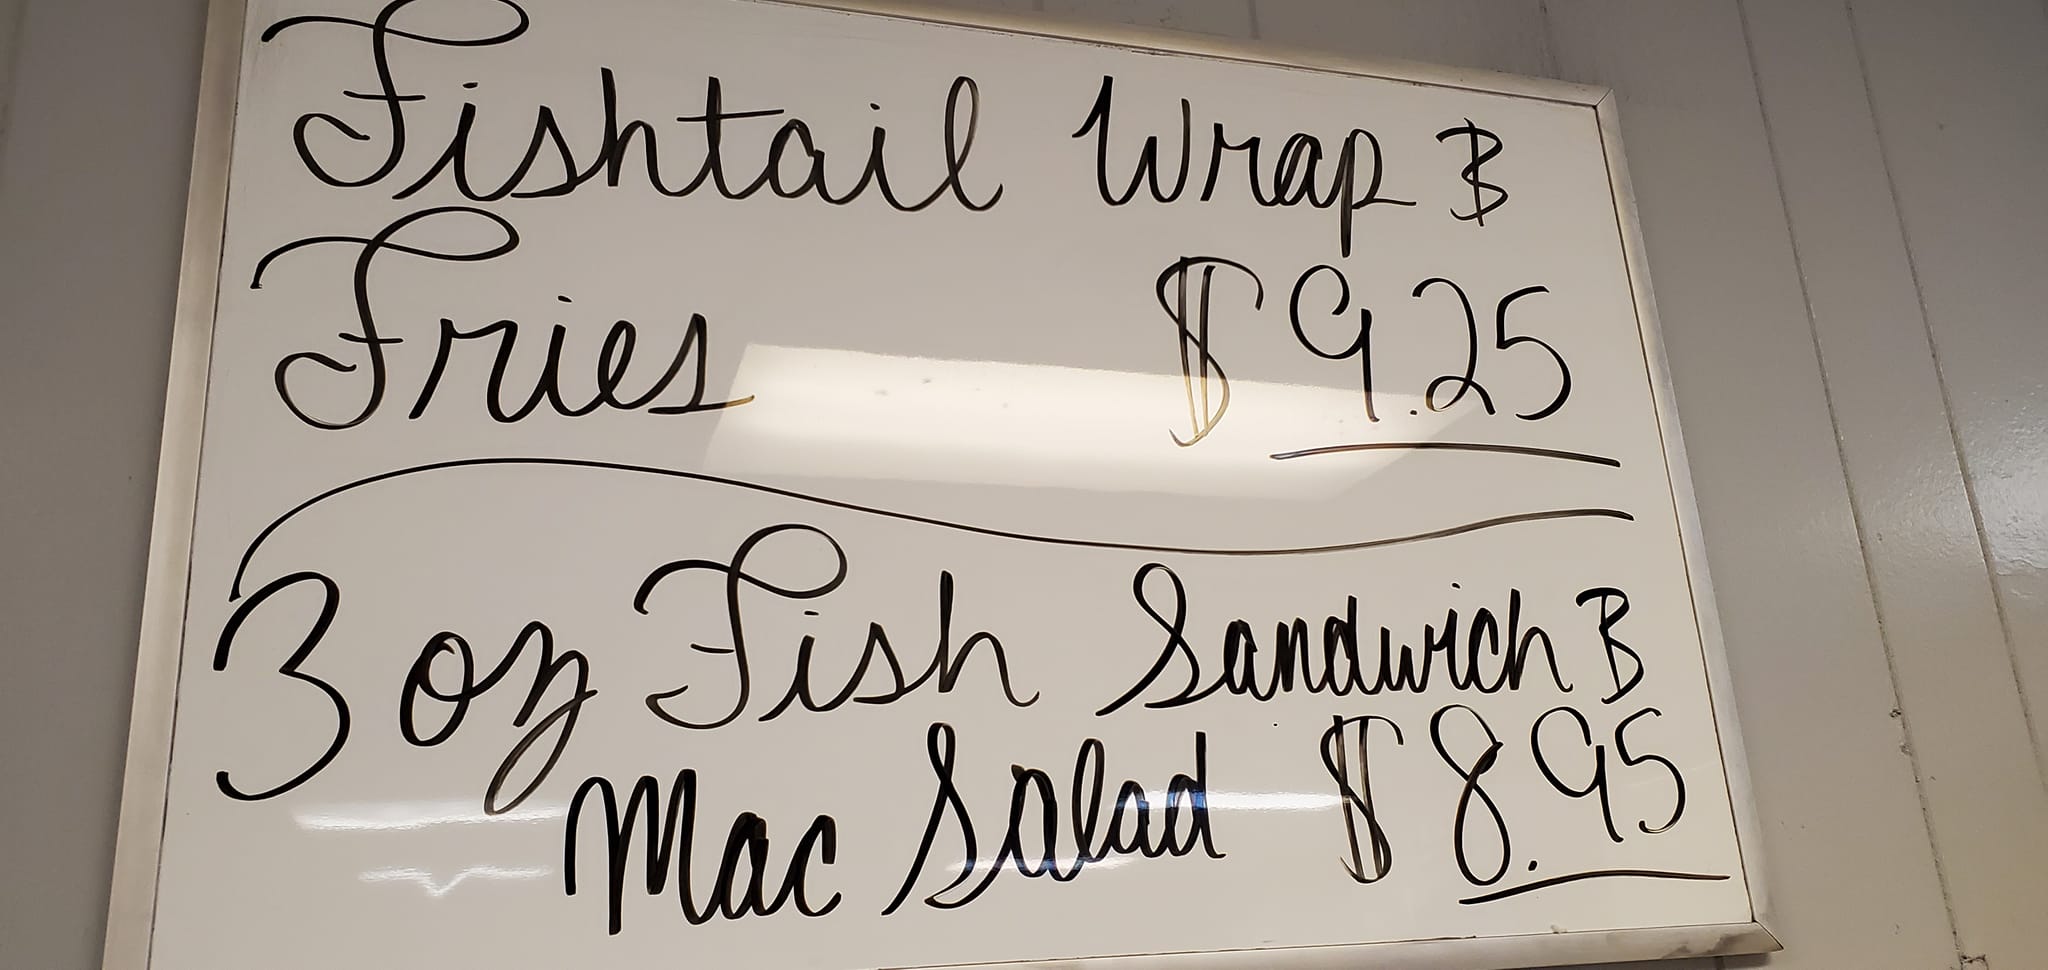 Fishtail Wrap &
Fries $9.25
3 oz Fish Sandwich &
Mac Salad $8.95